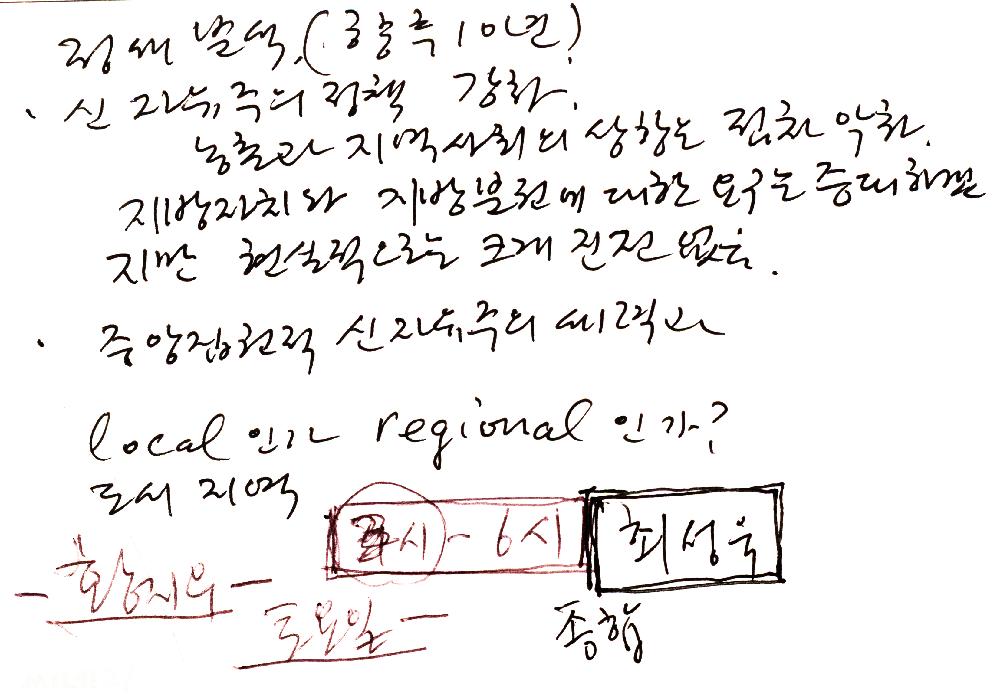 정세 분석. (향후 10년)
· 신자유주의 정책 강화.
농촌과 지역사회의 상황는 점차 악화.
지방자치와 지방분권에 대한 요구는 증대하겠
지만 현실적으로는 크게 진전 없음.
· 중앙집권적 신자유주의 세력과
local 인가 regional 인가?
도시 지역
시 - 6시 최성욱
- 황지우 -
토요일 -
종합